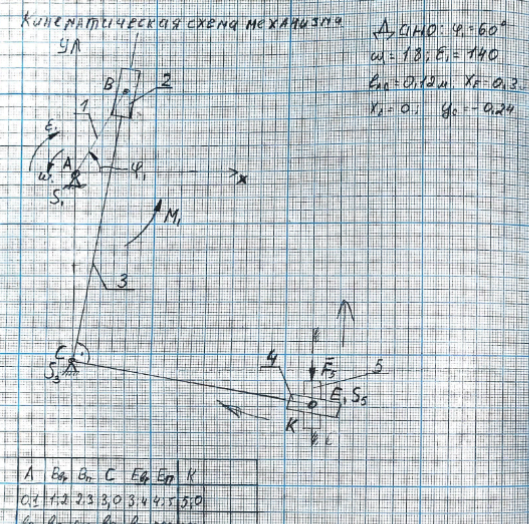 Кинематическая схема механизма
Дано: φ₁=60°
ω=18; ε₁=140
X_E=0,3
X_c=0; y_c=-0,24
yA
B
2
1
ε₁
A
φ₁
x
ω₁
S₁
M₁
3
C
S₃
4
F₅
5
E, S₅
K
A Bвр Bп C Eвр Eп K
0,1 1,2 2,3 3,0 3,4 4,5 5,0